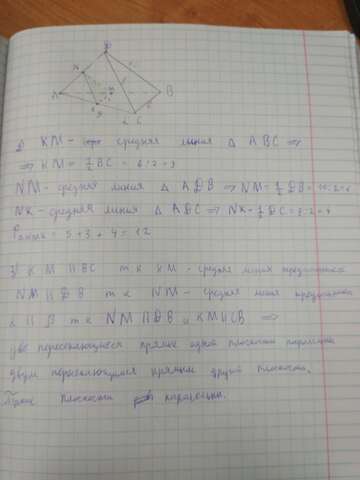 D
N
M
A
B
K
C
2) KM - средняя линия Δ ABC ⇒
⇒ KM = 1/2 BC = 6:2=3
NM - средняя линия Δ ADB ⇒ NM = 1/2 DB = 10:2=5
NK - средняя линия Δ ADC ⇒ NK = 1/2 DC = 8:2=4
P = 5+3+4=12
3) KM || BC т.к KM - средняя линия треугольника
NM || DB т.к NM - средняя линия треугольника
α || β т.к NM || DB и KM || CB ⇒
две пересекающиеся прямые одной плоскости параллельны
двум пересекающимся прямым другой плоскости.
плоскости параллельны.